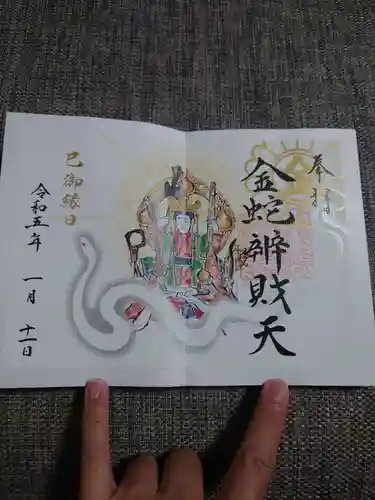 奉拝
金蛇辨財天
巳御縁日
令和五年 一月 十一日